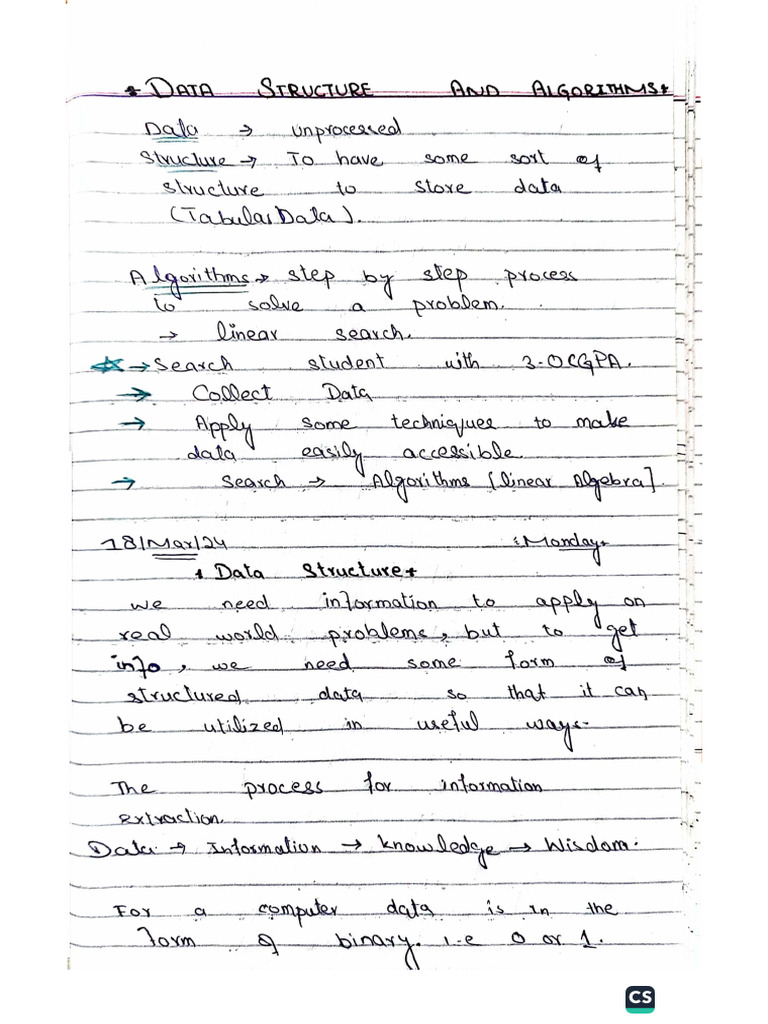 * DATA STRUCTURE AND ALGORITHMS *
Data → unprocessed
Structure → To have some sort of
structure to store data
(Tabular Data).
Algorithms → step by step process
to solve a problem.
→ linear search.
☆ → Search student with 3.0 CGPA.
→ Collect Data
→ Apply some techniques to make
data easily accessible.
→ Search → Algorithms [linear Algebra].
18/Mar/24 :Monday*
* Data Structure *
we need information to apply on
real world problems, but to get
info, we need some form of
structured data so that it can
be utilized in useful ways.
The process for information
extraction.
Data → Information → Knowledge → Wisdom.
For a computer data is in the
form of binary. i-e 0 or 1.
CS